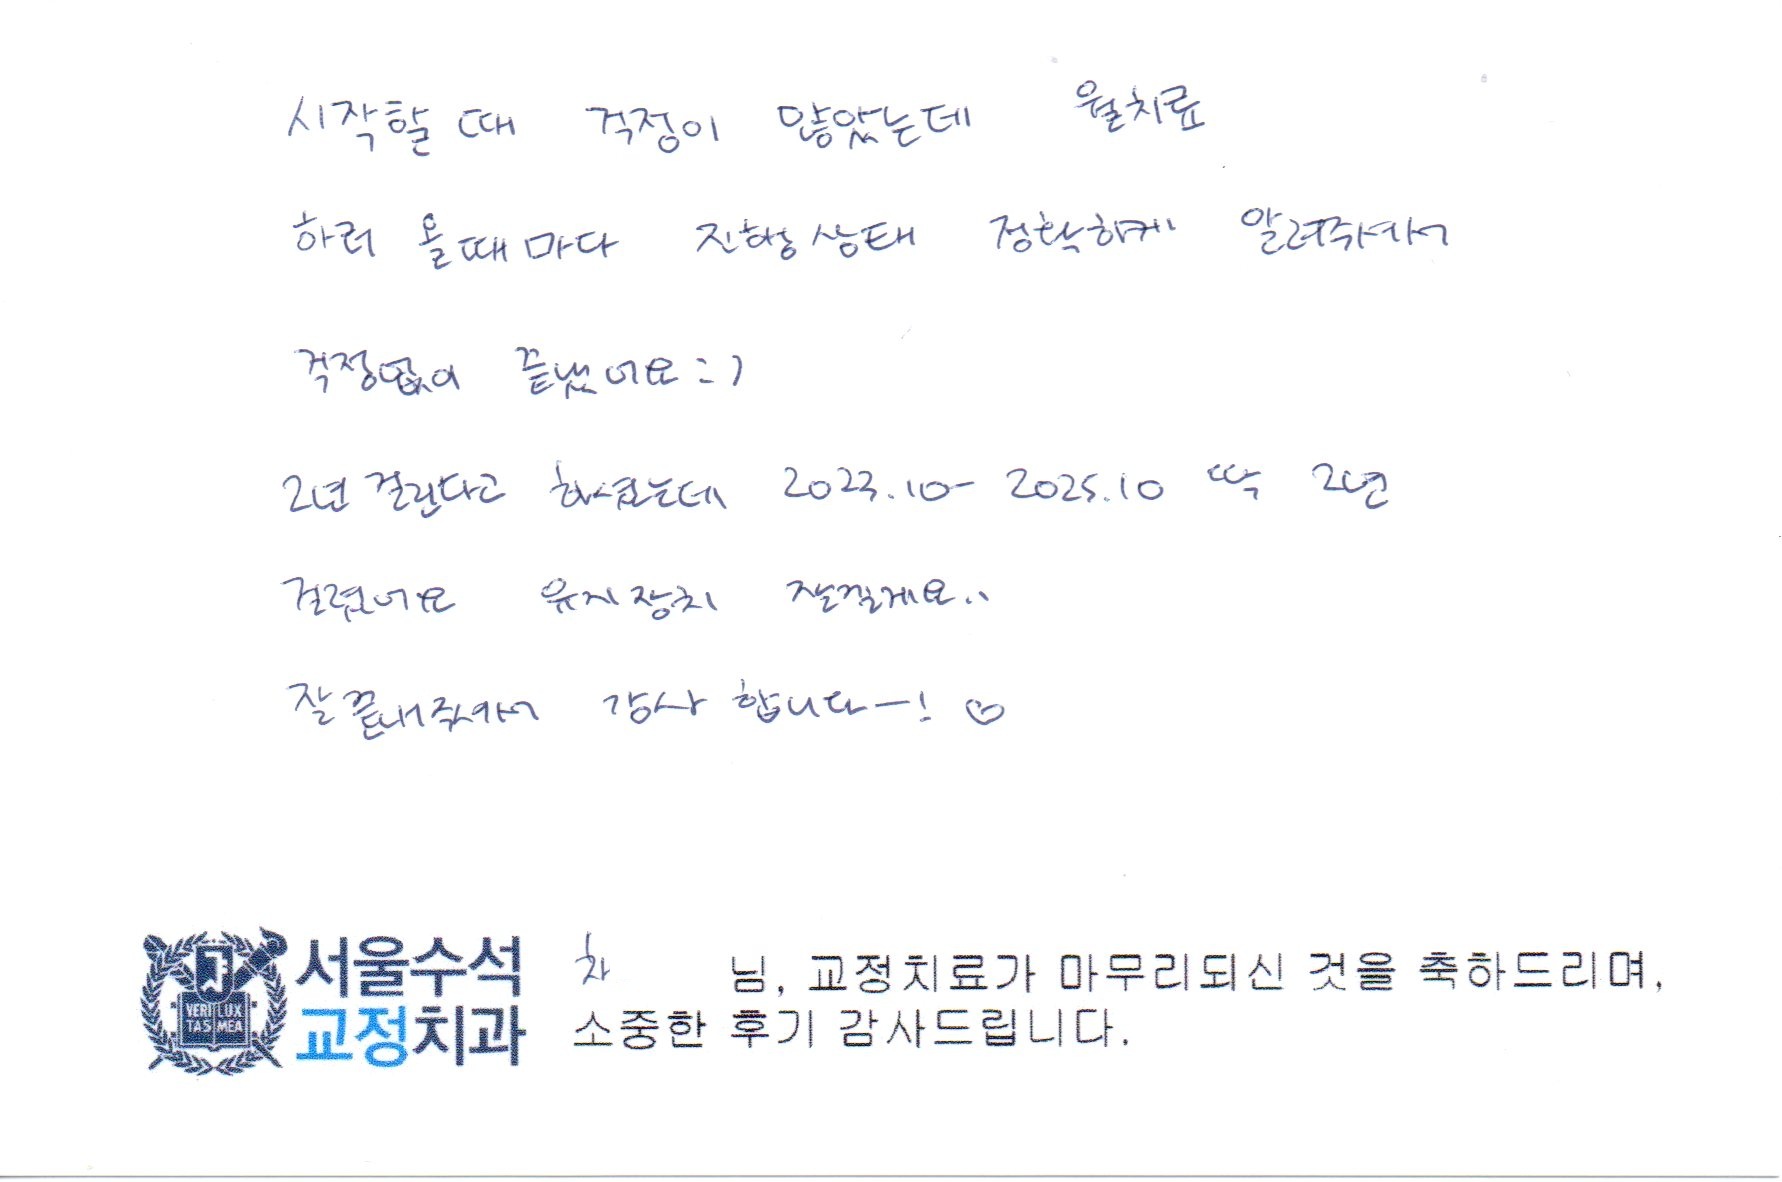 시작할 때 걱정이 많았는데 월치료
하러 올때마다 진행상태 정확하게 알려주셔서
걱정없이 끝냈어요 : )
2년 걸린다고 하셨는데 2023.10- 2025.10 딱 2년
걸렸어요 유지장치 잘낄게요..
잘 끝내주셔서 감사합니다-! ♡
서울수석
교정치과
VERI LUX
TAS MEA
차 님, 교정치료가 마무리되신 것을 축하드리며,
소중한 후기 감사드립니다.